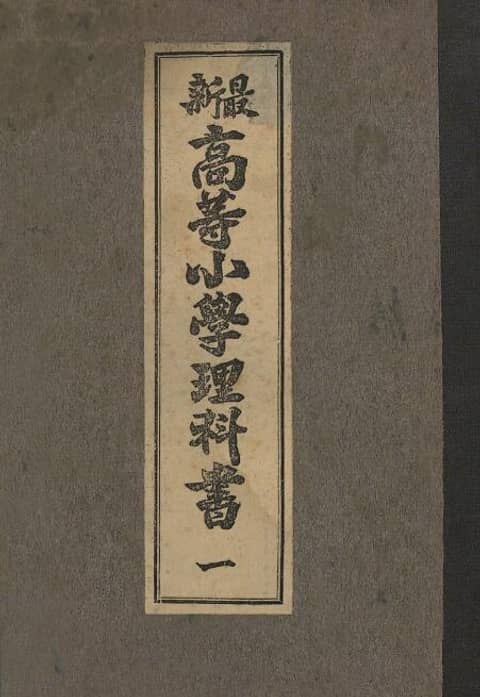 最新
高等小學理科書
一